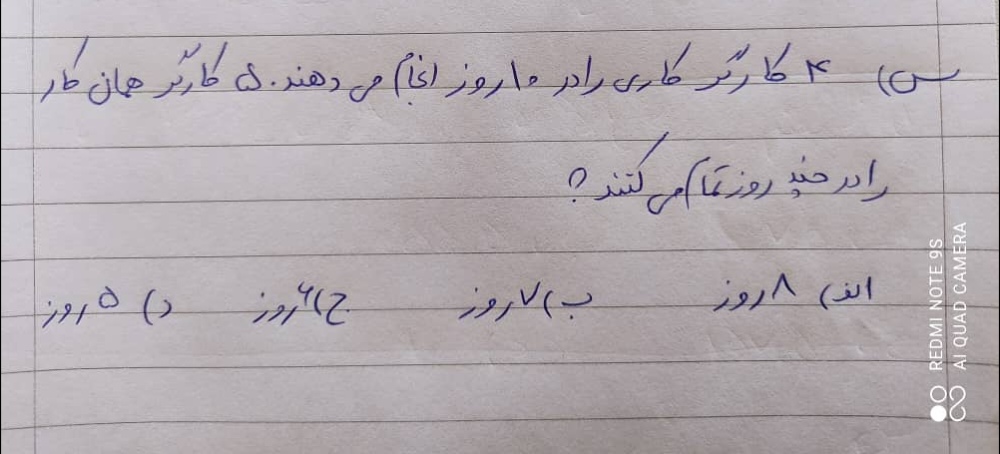 س) ۴ کارگر کاری را در ۱۰ روز انجام می دهند. ۵ کارگر همان کار
را در چند روز تمام می کنند؟
الف) ۸ روز ب) ۷ روز ج) ۶ روز د) ۵ روز
REDMI NOTE 9S
AI QUAD CAMERA